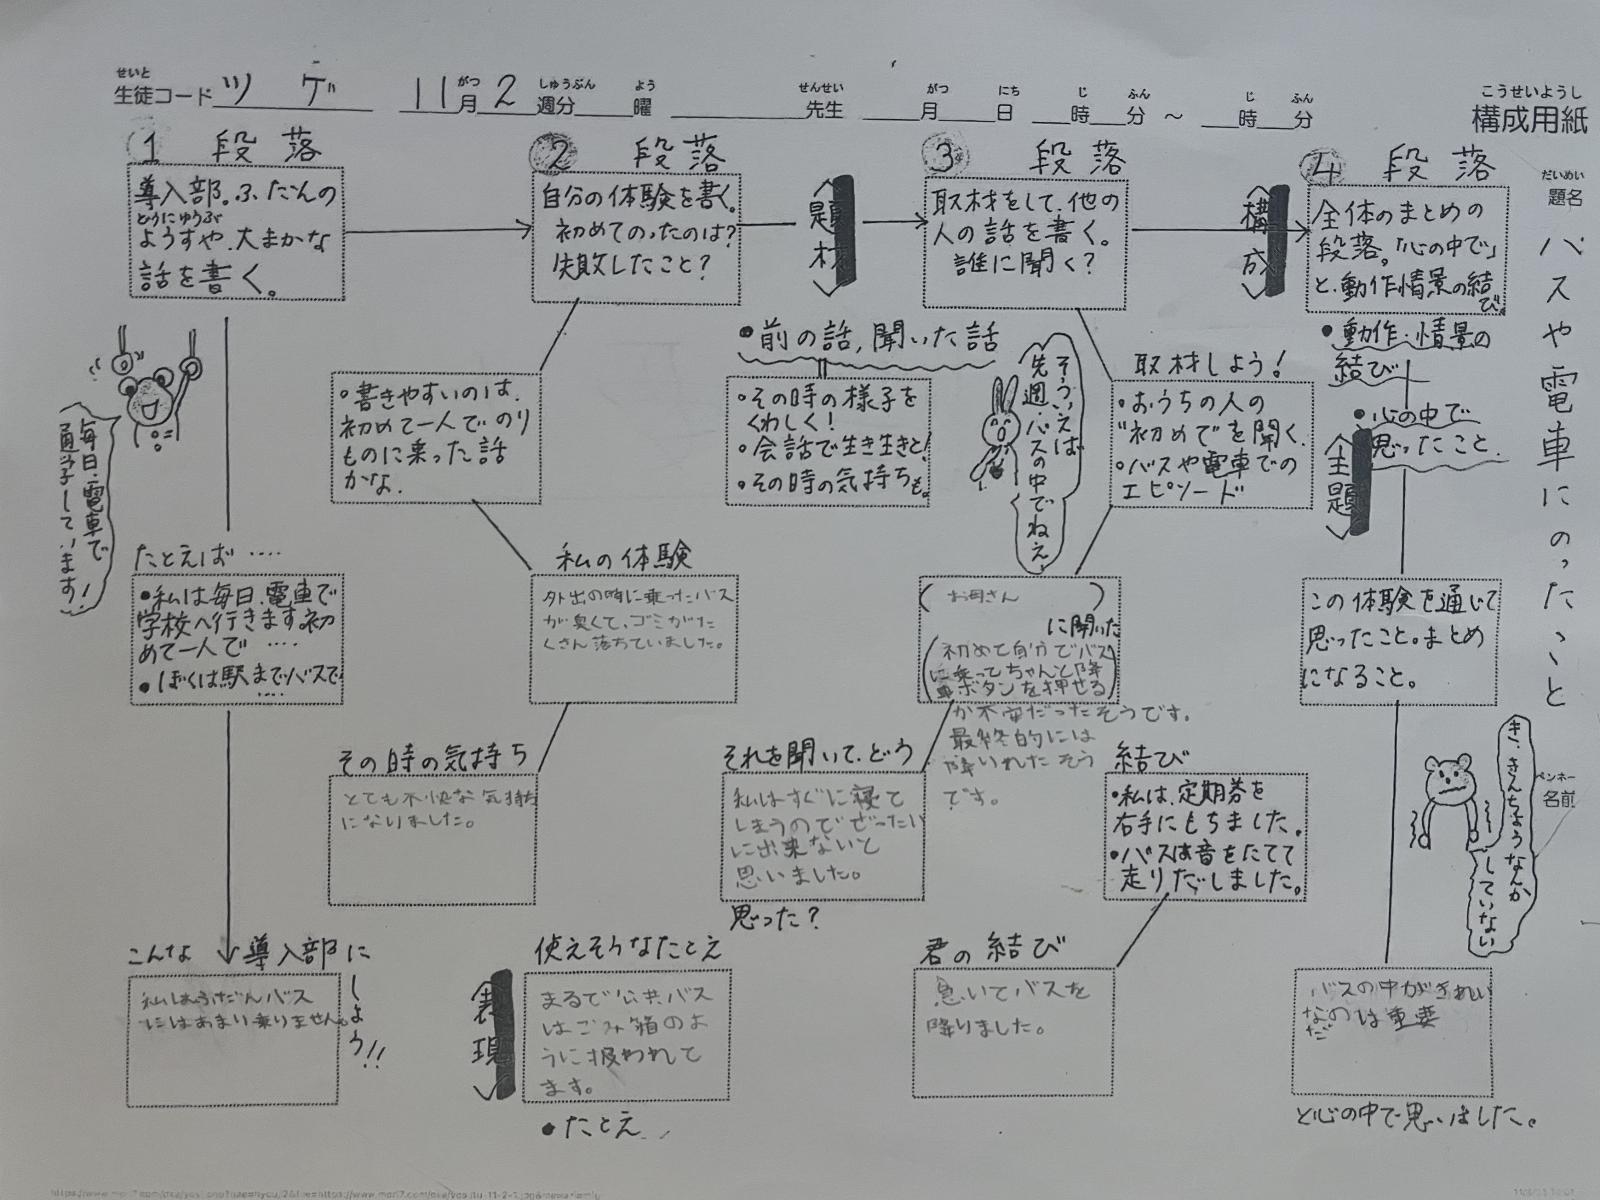 せいと
生徒コード ツゲ 11月2週分 曜 先生 月 日 時 分 ～ 時 分
がつ しゅうぶん よう せんせい がつ にち じ ふん じ ふん
こうせいようし
構成用紙
だいめい
題名
バスや電車にのったこと
ペンネーム
名前
1 段落
導入部。ふだんの
どうにゅうぶ
ようすや、大まかな
話を書く。
毎日、電車で
通学しています!
たとえば ....
•私は毎日、電車で
学校へ行きます。初
めて一人で ....
•ぼくは駅までバスで
....
こんな 導入部に
しよう!!
私はふだんバス
にはあまり乗りません。
2 段落
自分の体験を書く。
初めてのったのは?
失敗したこと?
•書きやすいのは、
初めて一人でのり
ものに乗った話
かな。
私の体験
外出の時に乗ったバス
が臭くて、ゴミがた
くさん落ちていました。
その時の気持ち
とても不快な気持ち
になりました。
表現
使えそうなたとえ
まるで公共バス
はごみ箱のよ
うに扱われて
ます。
•たとえ
題材
•前の話,聞いた話
•その時の様子を
くわしく!
•会話で生き生きと!
•その時の気持ちも。
3 段落
取材をして、他の
人の話を書く。
誰に聞く?
そういえば
先週、バスの中でねえ
取材しよう!
•おうちの人の
"初めて"を聞く.
•バスや電車での
エピソード
(お母さん)
に聞いた
初めて自分でバス
に乗ってちゃんと降
車ボタンを押せる
か不安だったそうです。
最終的には
降りれたそう
です。
それを聞いて、どう
私はすぐに寝て
しまうのでぜったい
に出来ないと
思いました。
思った?
結び
•私は、定期券を
右手にもちました。
•バスは音をたてて
走りだしました。
君の結び
急いでバスを
降りました。
構成
4 段落
全体のまとめの
段落。「心の中で」
と、動作情景の結
び。
•動作・情景の
結び
•心の中で
思ったこと
主題
この体験を通じて
思ったこと。まとめ
になること。
き、きんちょうなんか
していない
バスの中がきれい
なのは重要
だ
と心の中で思いました。